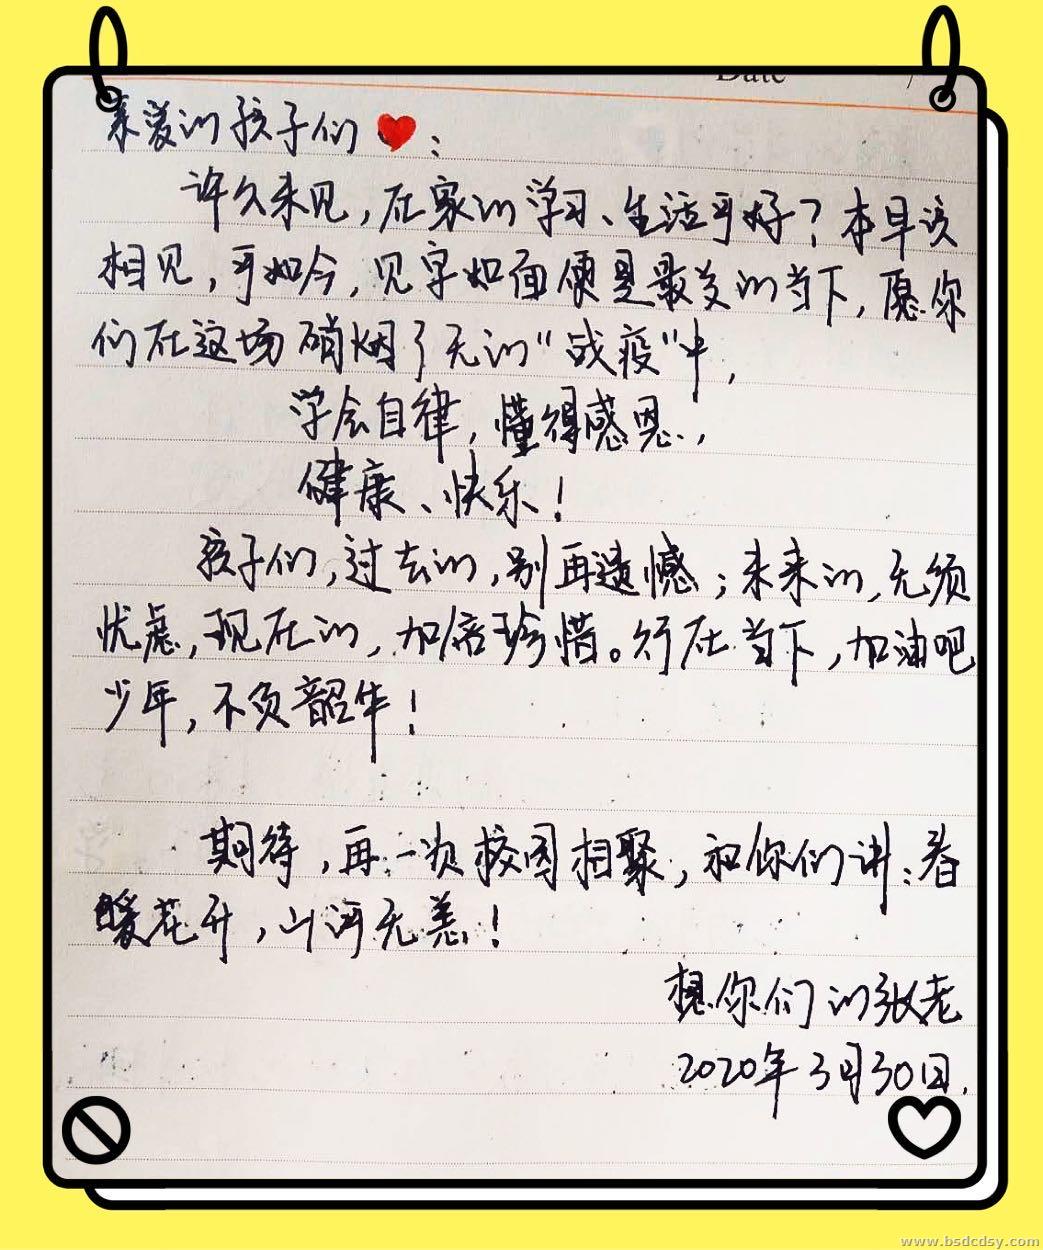 Date /
亲爱的孩子们❤：
许久未见，在家的学习、生活可好？本早该
相见，可如今，见字如面便是最美的当下，愿你
们在这场硝烟了无的“战疫”中，
学会自律，懂得感恩，
健康、快乐！
孩子们，过去的，别再遗憾；未来的，无须
忧虑，现在的，加倍珍惜。行在当下，加油吧
少年，不负韶华！
期待，再一次校园相聚，和你们讲：春
暖花开，山河无恙！
想你们的张老
2020年3月30日.
www.bsdcdsy.com